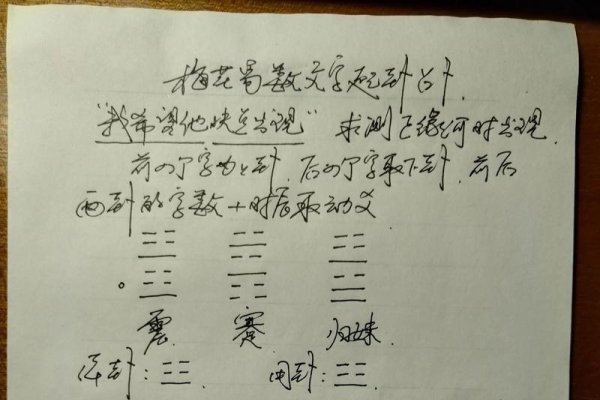 梅花易数文字起卦占卜
"我希望他快点出现" 求测正缘何时出现
前四个字为上卦,后四个字取下卦,前后
两卦的字数+时辰取动爻
震 蹇 归妹
体卦:☳ 用卦:☳